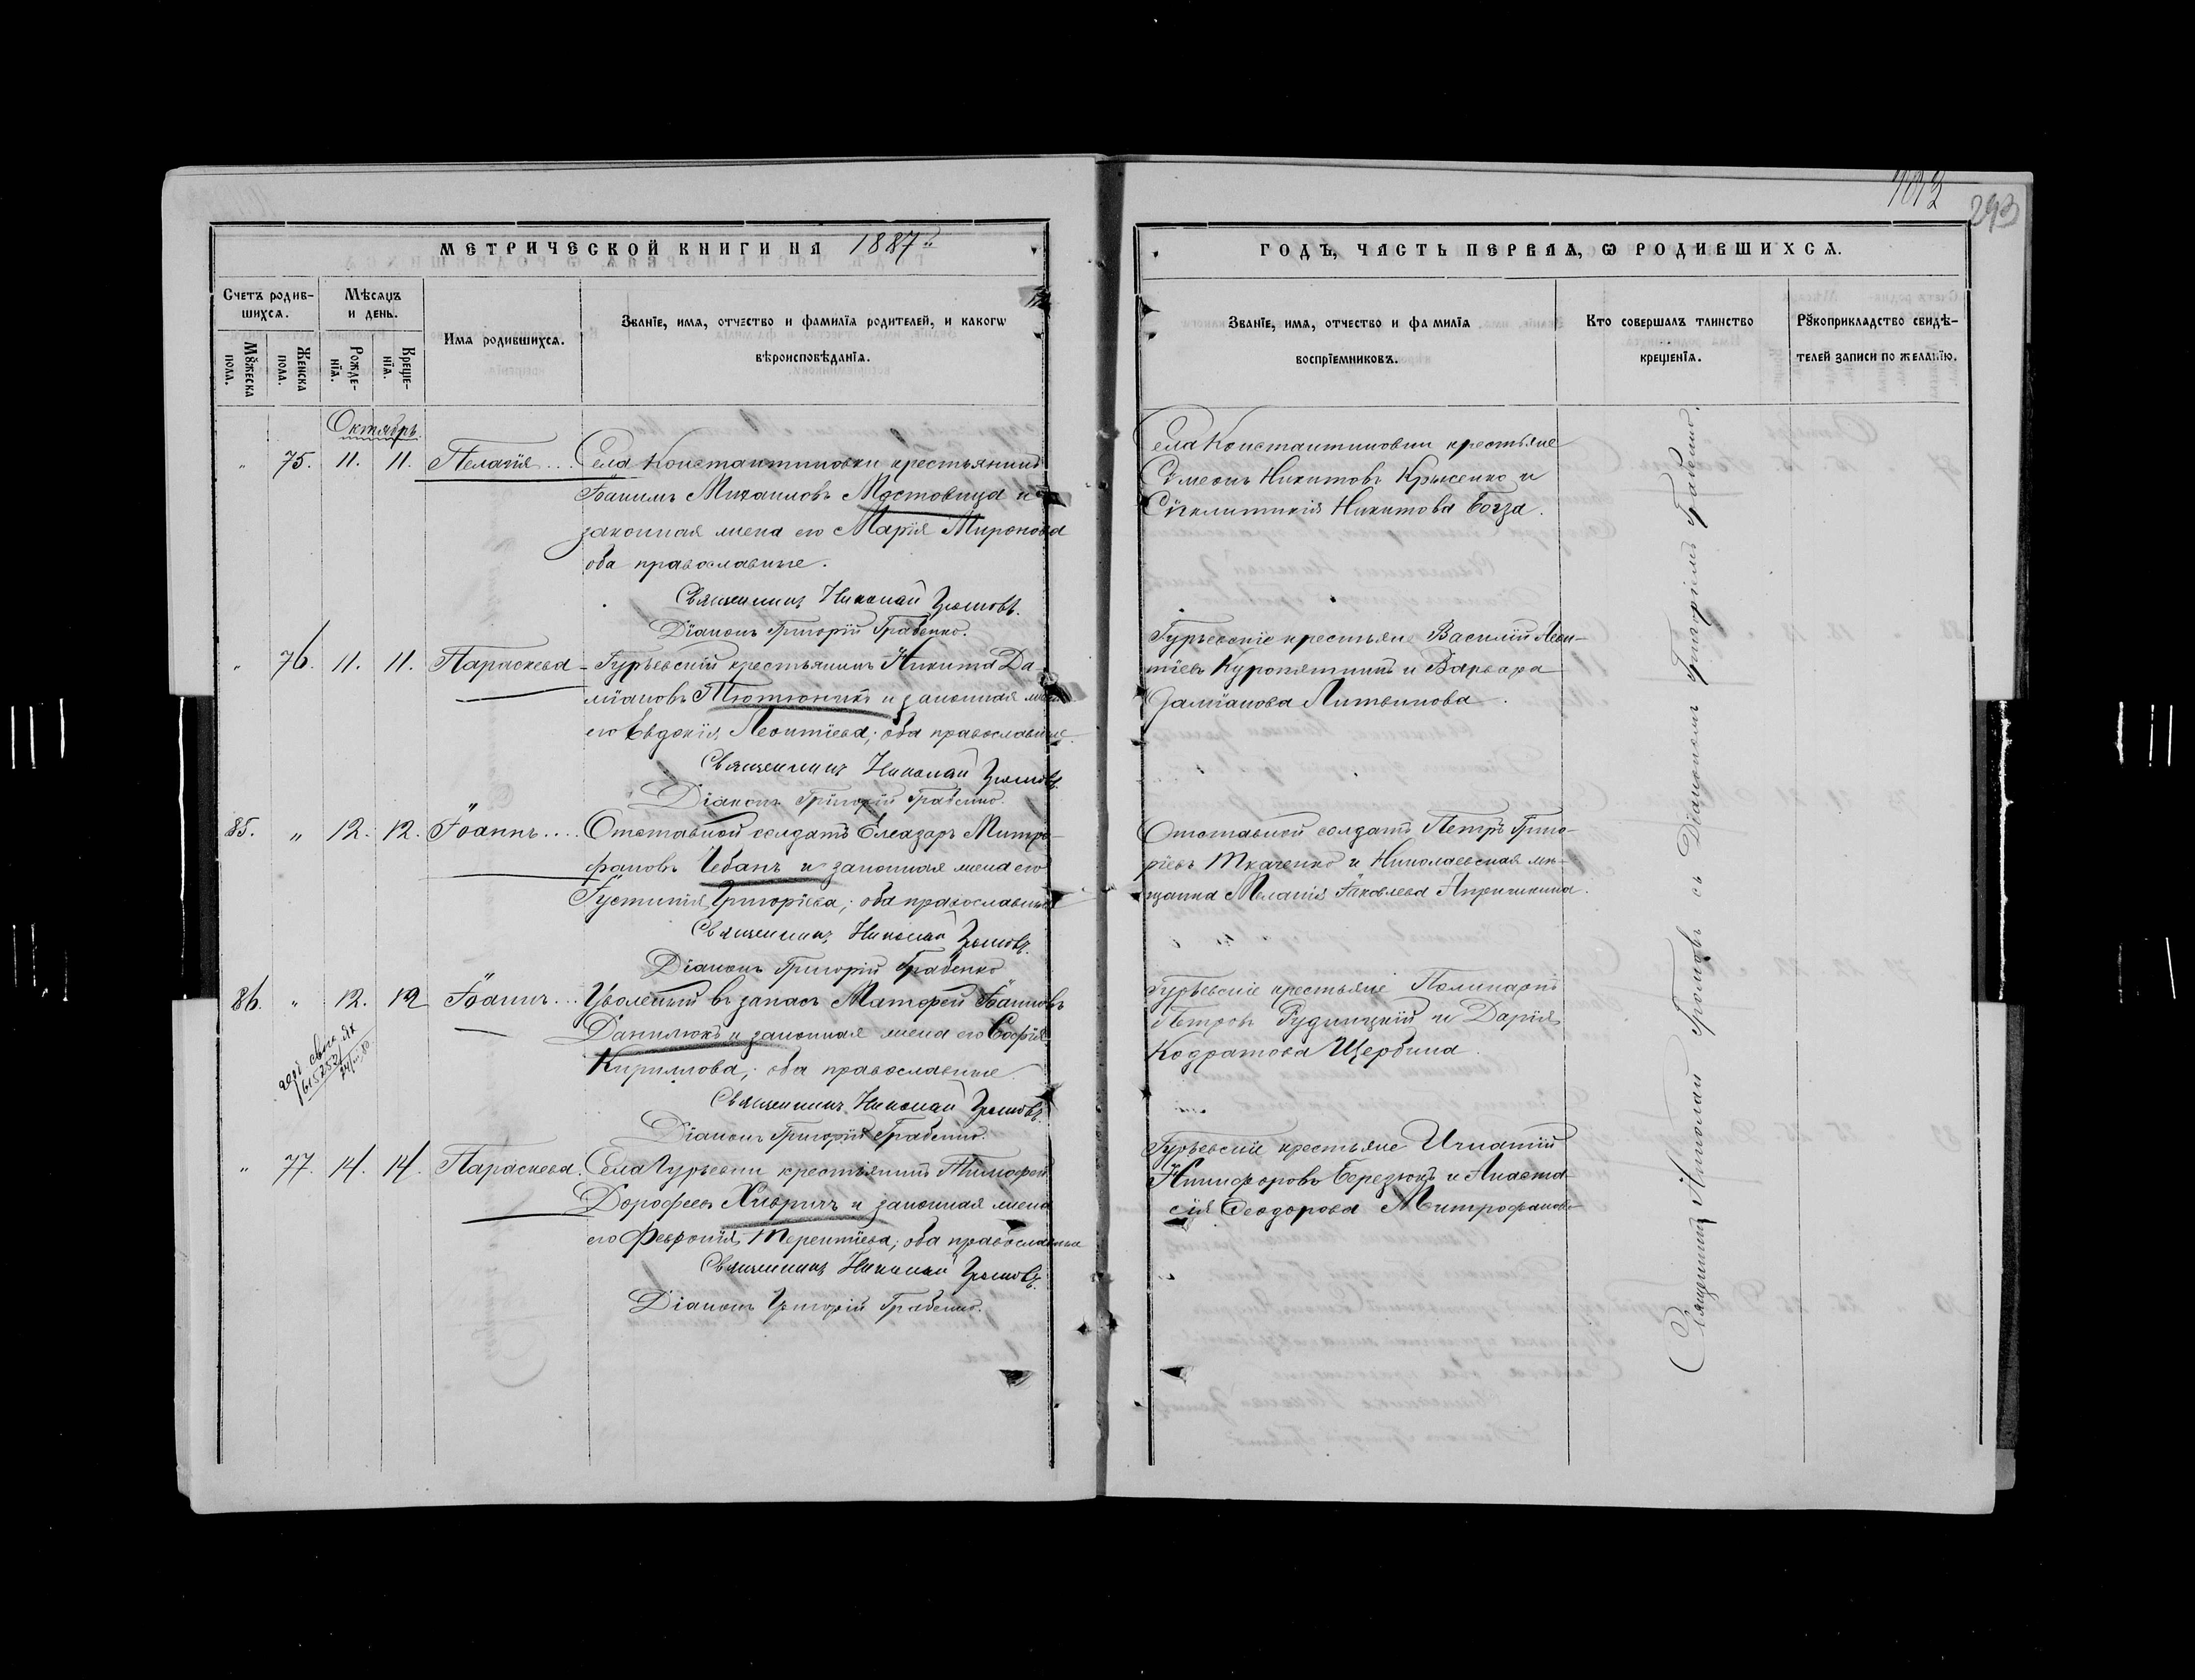 1012
293
МЕТРИЧЕСКОЙ КНИГИ НА 1887й
ГОДЪ, ЧАСТЬ ПЕРВАЯ, Ѡ РОДИВШИХСѦ.
Счетъ родив-
шихсѧ.
Мѣсѧцъ
и день.
Имѧ родившихсѧ.
Званїе, имѧ, отчество и фамилїѧ родителей, и какогѡ
вѣроисповѣданїѧ.
Мꙋжеска
пола.
Женска
пола.
Рожде-
нїѧ.
Креще-
нїѧ.
Званїе, имѧ, отчество и фамилїѧ
воспрїемниковъ.
Кто совершалъ таинство
крещенїѧ.
Рꙋкоприкладство свидѣ-
телей записи по желанїю.
Октябрь
" 75. 11. 11. Пелагія... Села Константиновки крестьянинъ
Іоаннъ Михаиловъ Мостовица и
законная жена его Марія Миронова
оба православные.
Священникъ Николай Громовъ.
Діаконъ Григорій Грабенко.
Села Константиновки крестьяне
Сѵмеонъ Никитовъ Крысенко и
Сѵнклитикія Никитова Богза.
" 76. 11. 11. Параскева - Гурьевскій крестьянинъ Никита Да-
міановъ Тютюникъ и законная жена
его Евдокія Леонтіева; оба православные.
Священникъ Николай Громовъ.
Діаконъ Григорій Грабенко.
Гурьевскіе крестьяне Василій Леон-
тіевъ Куропятникъ и Варвара
Даміанова Литвинова.
85. " 12. 12. Іоаннъ.... Отставной солдатъ Елеазаръ Митро-
фановъ Чебанъ и законная жена его
Іустинія Григоріева; оба православные
Священникъ Николай Громовъ.
Діаконъ Григорій Грабенко
Отставной солдатъ Петръ Григо-
ріевъ Ткаченко и Николаевская мѣ-
щанка Меланія Іаковлева
86. " 12. 12 Іоаннъ... Уволенный въ запасъ Матфей Іоанновъ
Данилюкъ и законная жена его Софія
Кириллова; оба православные
Священникъ Николай Громовъ.
Діаконъ Григорій Грабенко.
Гурьевскіе крестьяне Поликарпъ
Петровъ Рудницкій и Дарія
Кодратова Щербина.
" 77. 14. 14. Параскева. Села Гурьевки крестьянинъ Тимофей
Дорофеевъ Хиврич и законная жена
его Февронія Терентіева; оба православные
Священникъ Николай Громовъ.
Діаконъ Григорій Грабенко.
Гурьевскіе крестьяне Игнатій
Никифоровъ Березюкъ и Анаста-
сія Феодорова Митрофанова
Священникъ Николай Громовъ съ Діакономъ Григоріемъ Грабенко.